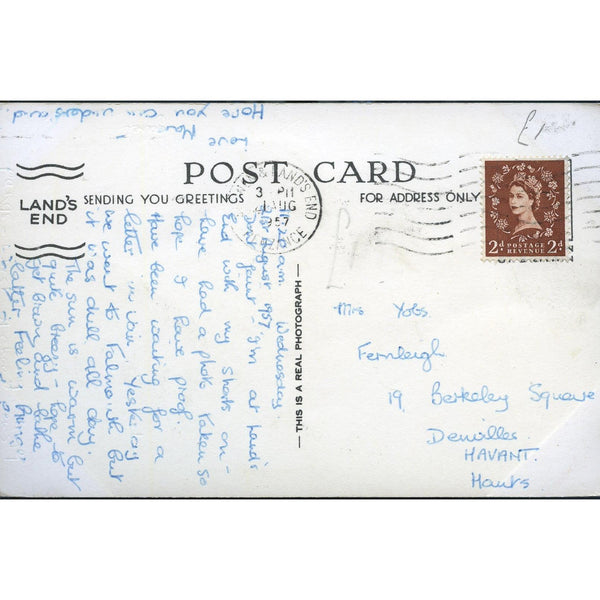 POST CARD
LAND'S
END
SENDING YOU GREETINGS
FOR ADDRESS ONLY
LAND'S END
3 PM
AUG
1957
2d POSTAGE 2d
REVENUE
11.20 am. Wednesday
August 1957
Dear Aunt - I'm at Land's
End with my shorts on -
have had a photo taken so
hope I have proof.
Have been waiting for a
letter in vain. Yesterday
we went to Falmouth but
it was dull all day.
The sun is warm but
quite breezy - hope to
get brown and bathe
later. Feeling
Love
Hope you can understand
— THIS IS A REAL PHOTOGRAPH —
Mrs Yobs.
Fernleigh
19 Berkeley Square
Denvilles
HAVANT.
Hants